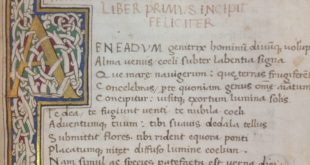 LIBER PRIMVS INCIPIT
FELICITER
AENEADVM genitrix hominū diuūq; volup
Alma uenus: coeli subter labentia signa
Quę mare nauigerum: quę terras frugiferē
Concelebras: per quoniam genus om̄e animā
Concipitur: uisitq; exortum lumina solis.
Te dea: te fugiunt uenti: te nubila coeli
Aduentumq; tuum: tibi suaueis dedala tellus
Submittit flores: tibi rident equora ponti
Placatumq; nitet diffuso lumine coelum:
Nam simul ac species patefacta est uerna diei